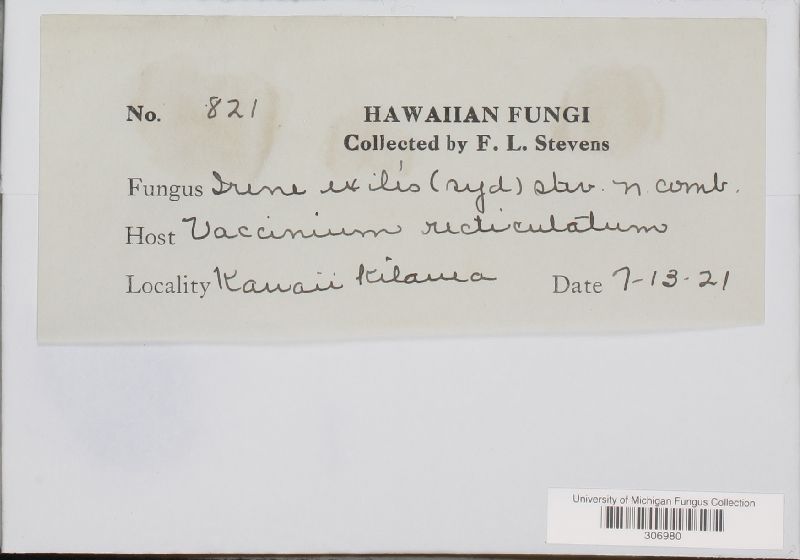 No. 821
HAWAIIAN FUNGI
Collected by F. L. Stevens
Fungus Irene exilis (syd) stev. n. comb.
Host Vaccinium recticulatum
Locality Kauaii Kilauea Date 7-13-21
University of Michigan Fungus Collection
306980